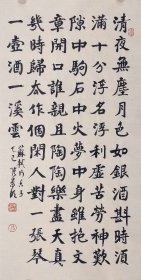 清夜無塵月色如銀酒斟時須
滿十分浮名浮利虛苦勞神歎
隙中駒石中火夢中身雖抱文
章開口誰親且陶陶樂盡天真
幾時歸去作個閑人對一張琴
一壺酒一溪雲
蘇軾行香子